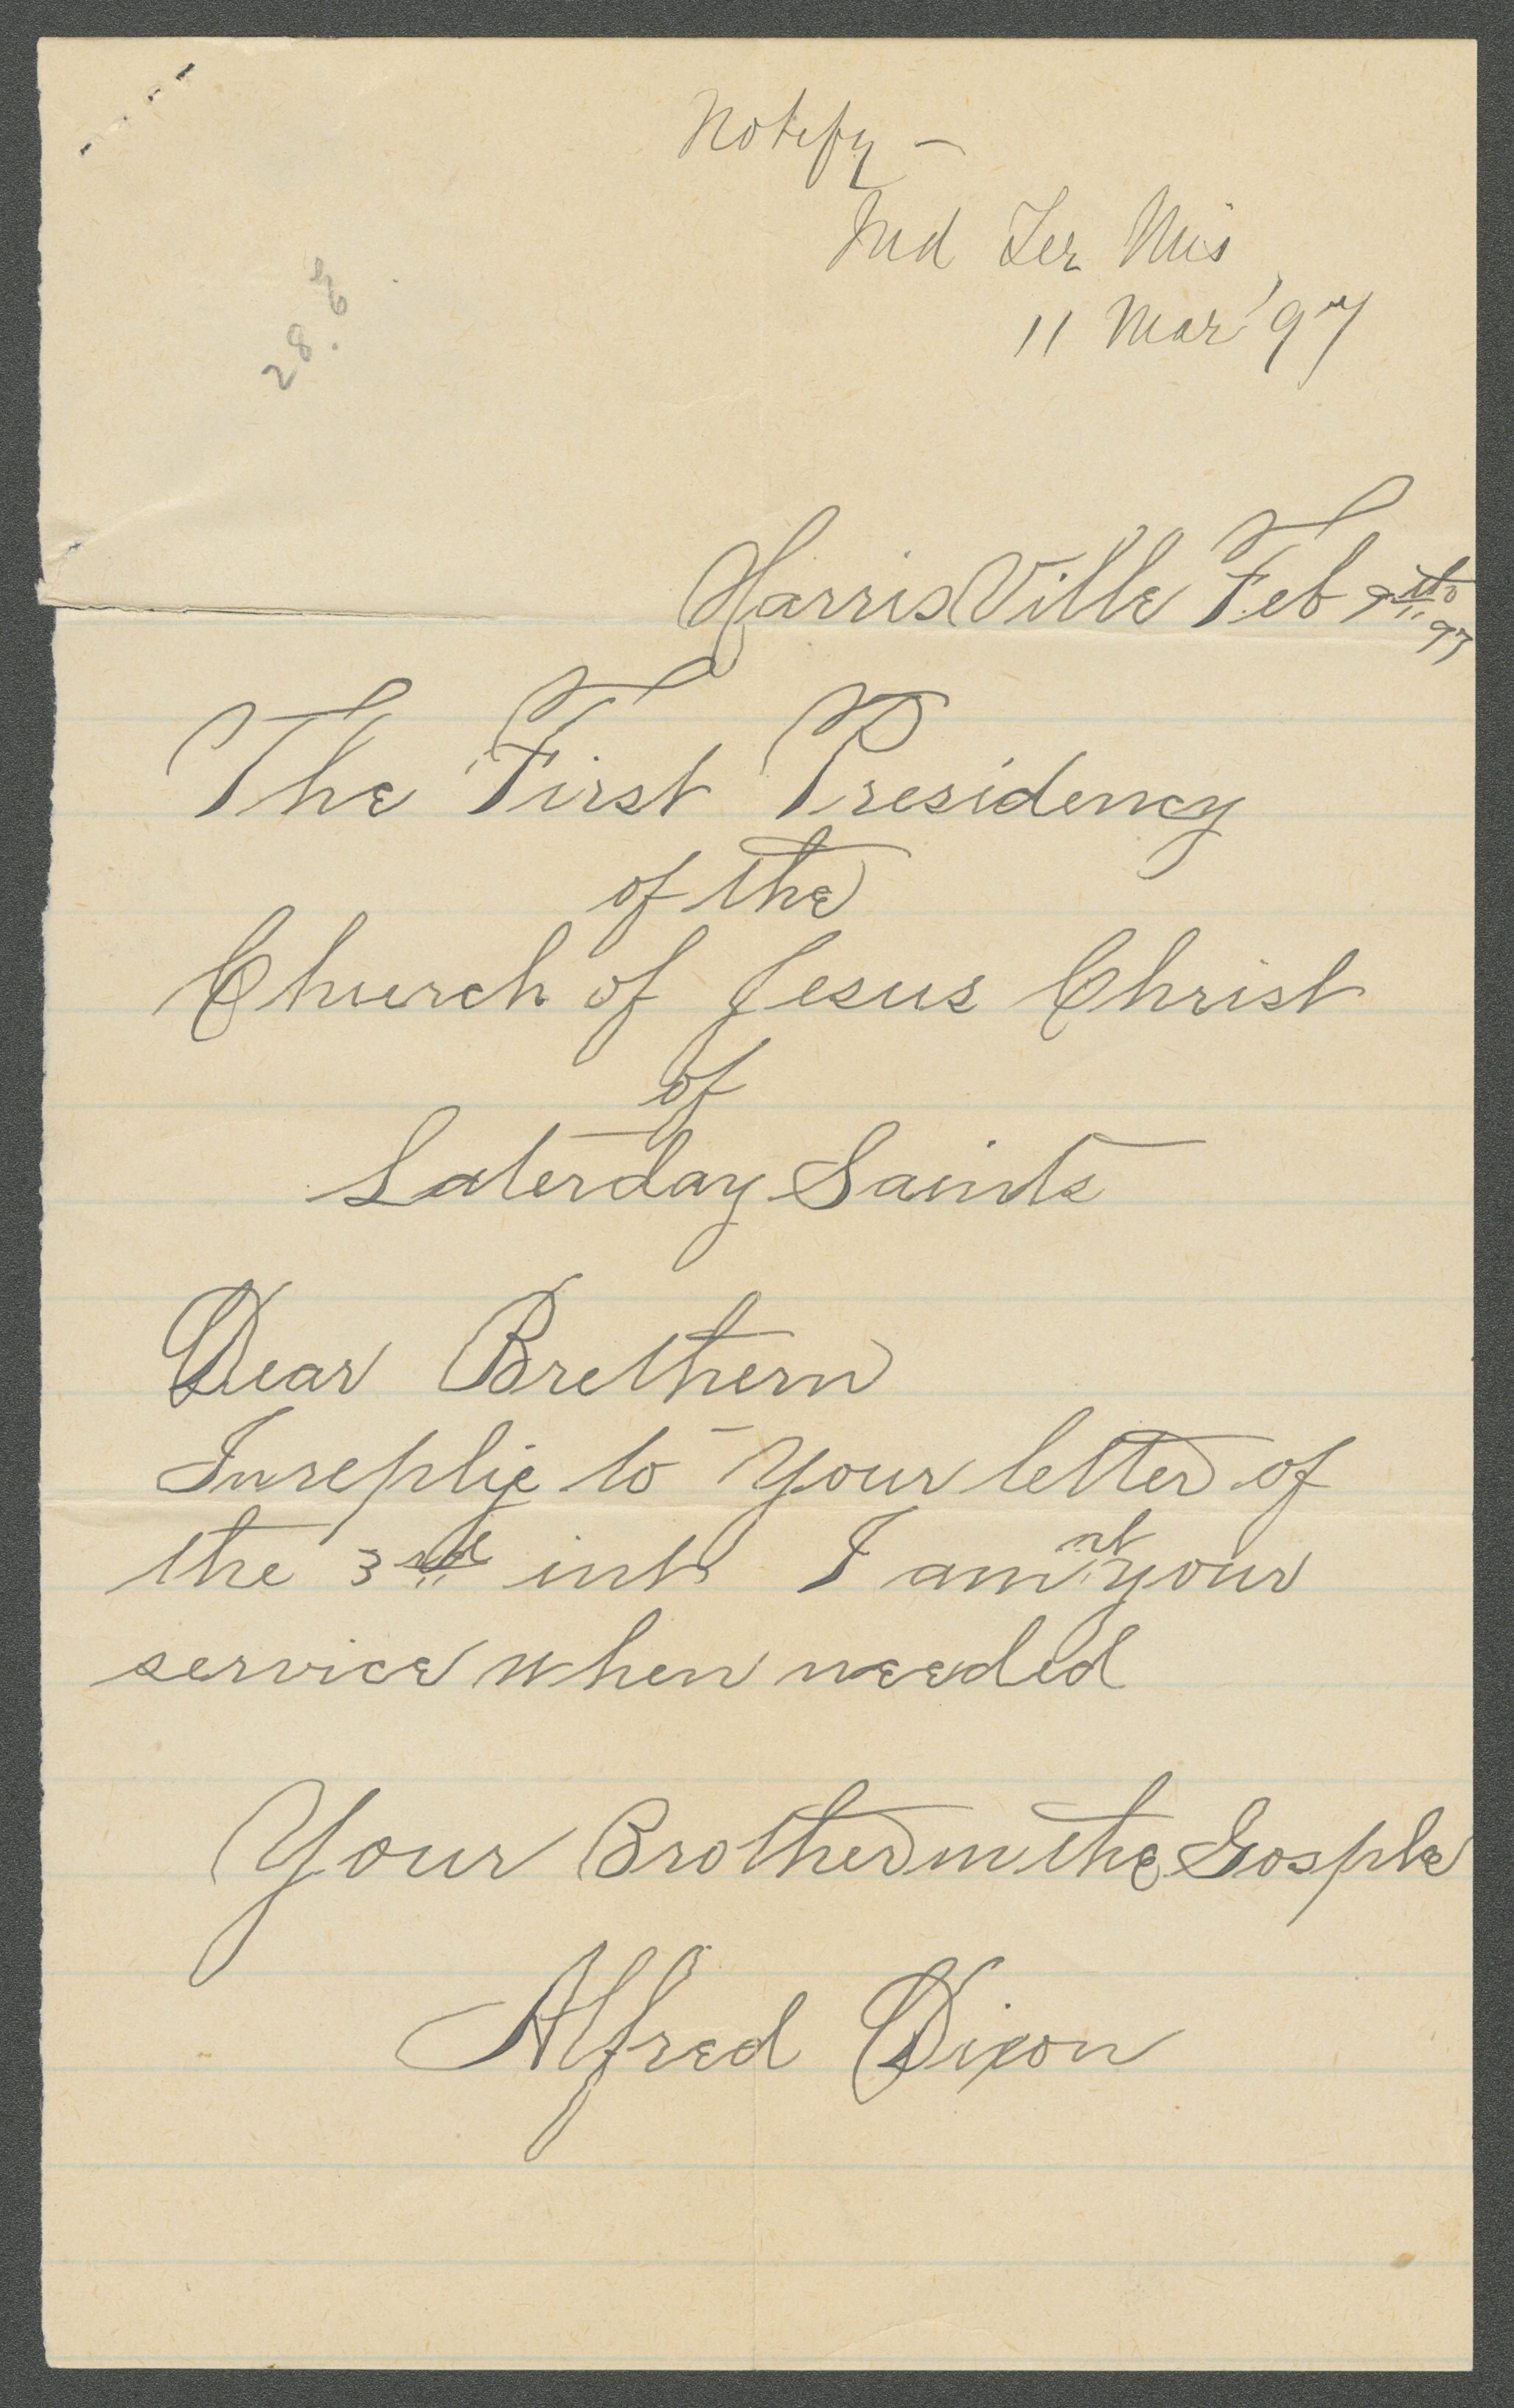 Notify –
Ind Ter Mis
11 Mar '97
HarrisVille Feb 9th 97
The First Presidency
of the
Church of Jesus Christ
of
Laterday Saints
Dear Brethern
In replie to Your letter of
the 3rd int I am at your
service when needed
Your Brother in the Gosple
Alfred Dixon